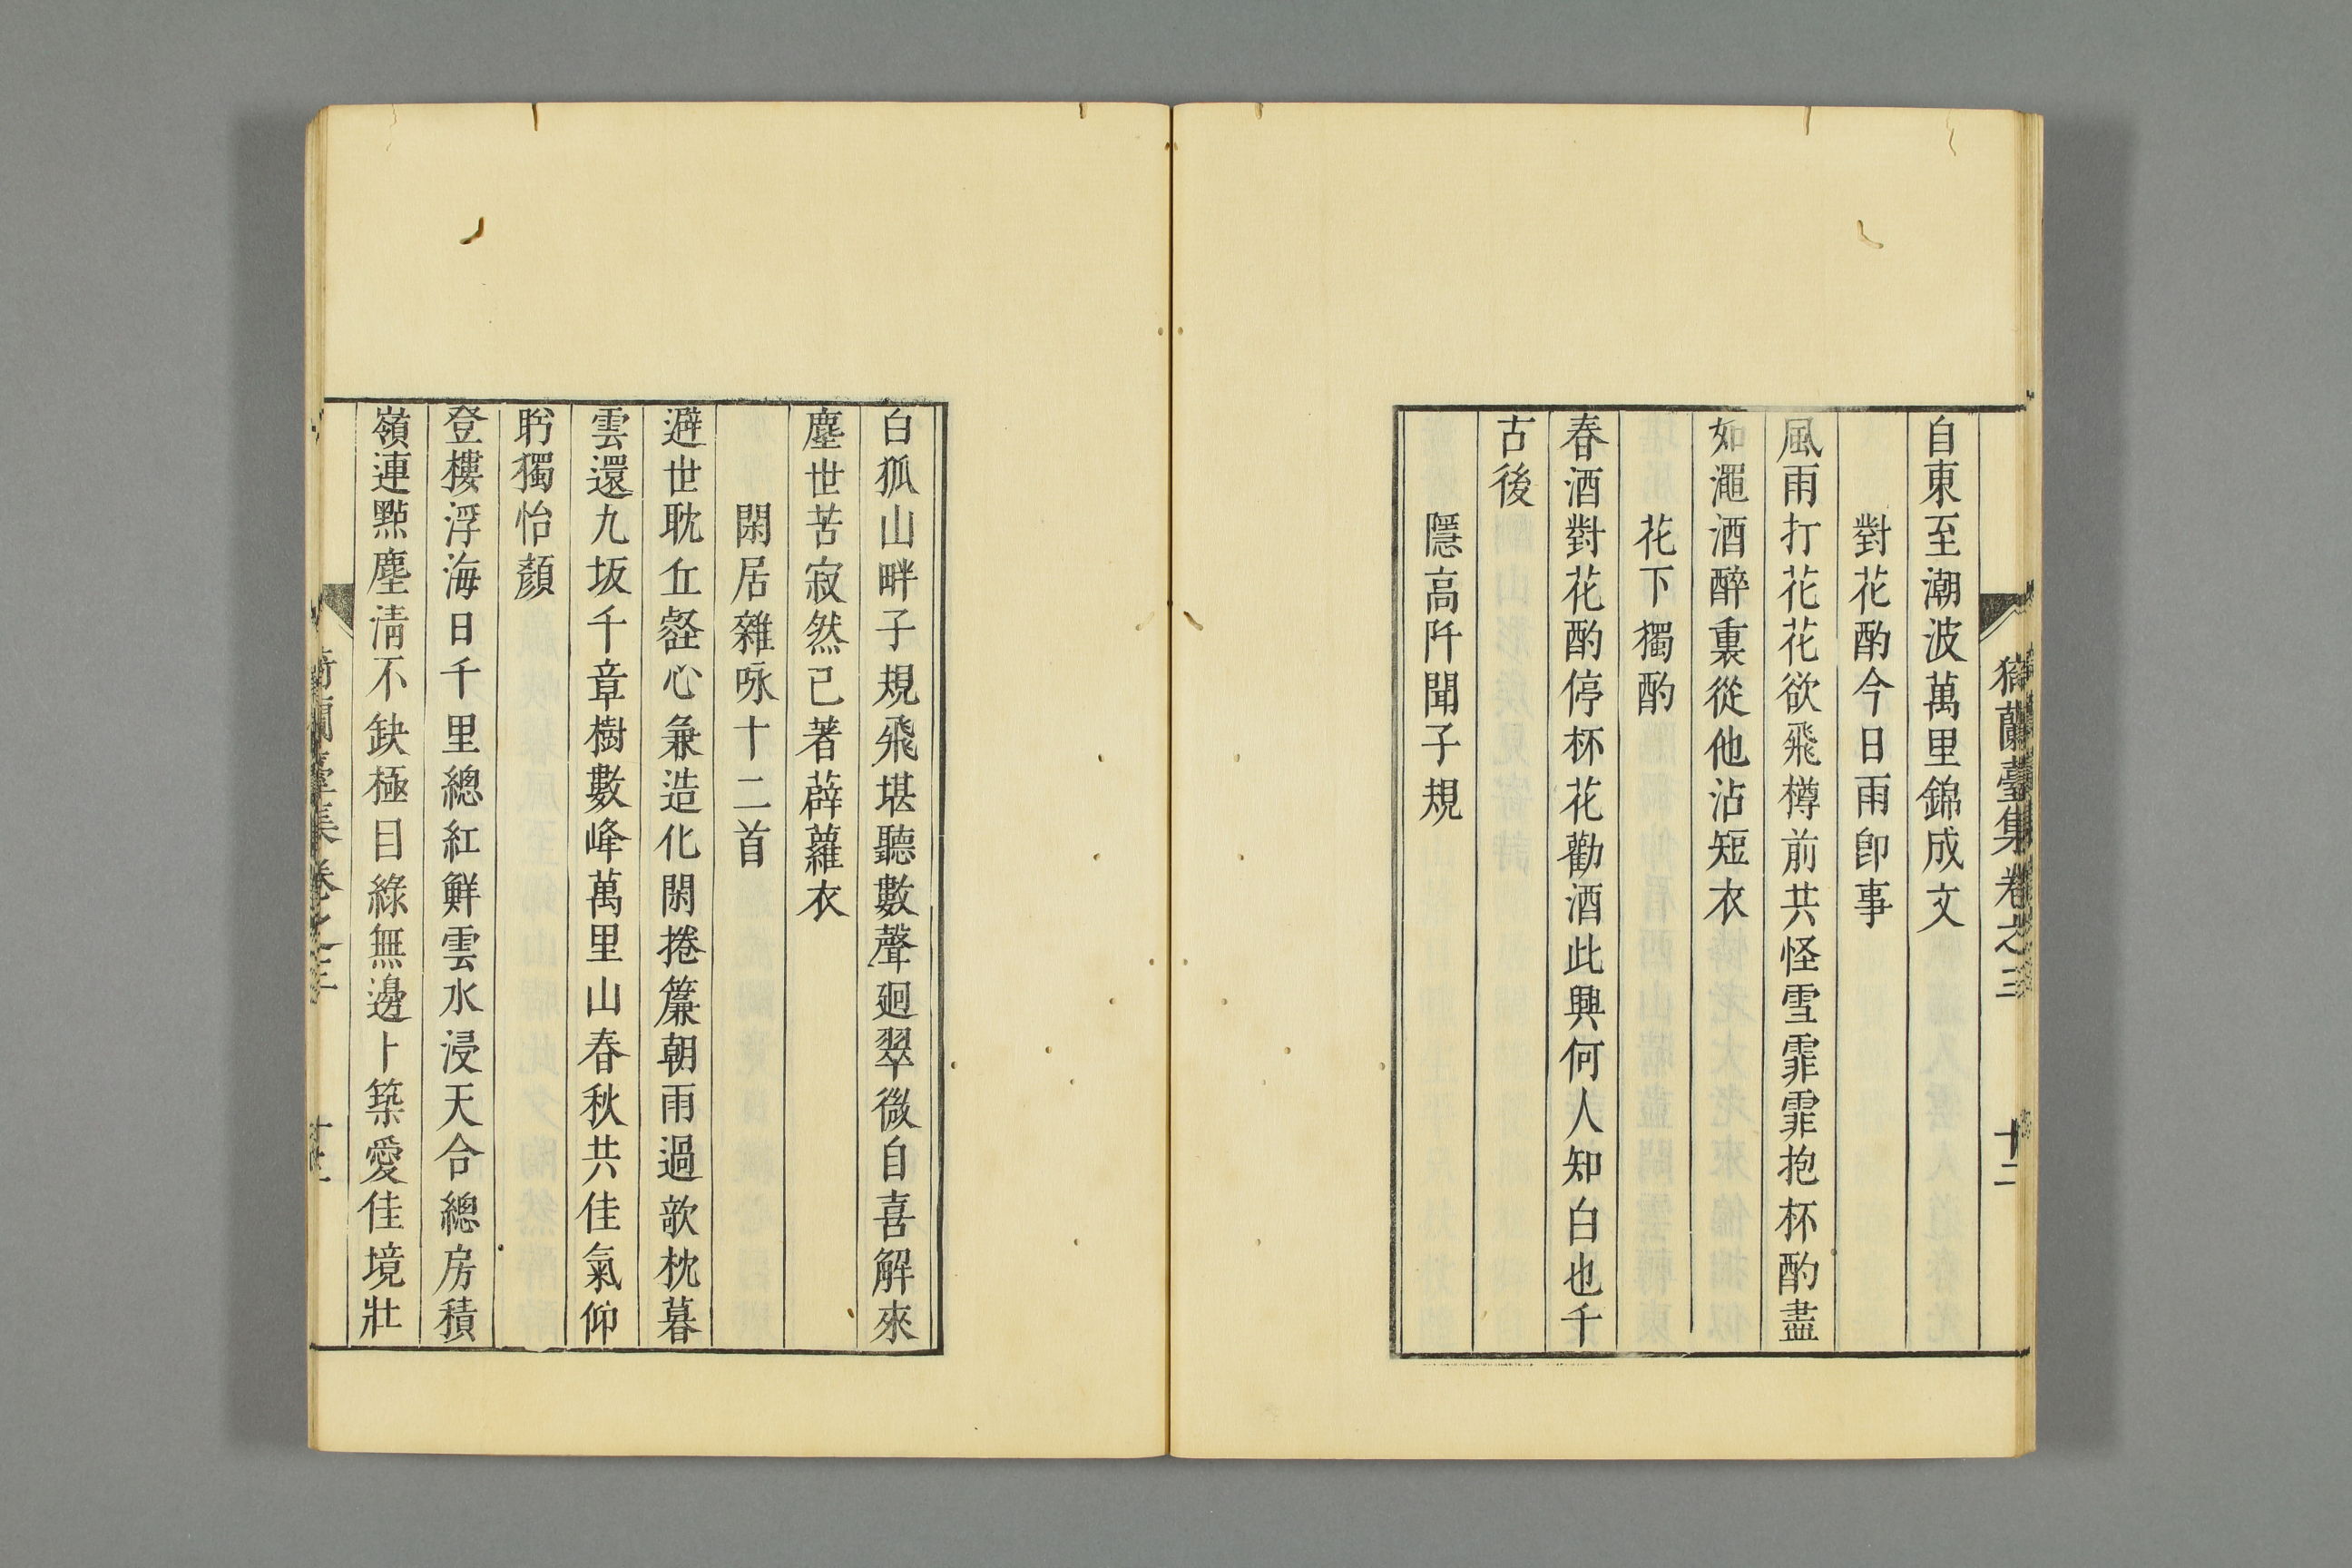 猗蘭臺集卷之三 十二
自東至潮波萬里錦成文
對花酌今日雨卽事
風雨打花花欲飛樽前共怪雪霏霏抱杯酌盡
如澠酒醉裏從他沾短衣
花下獨酌
春酒對花酌停杯花勸酒此興何人知白也千
古後
隱高阡聞子規
白狐山畔子規飛堪聽數聲廻翠微自喜解來
塵世苦寂然已著薜蘿衣
閑居雜咏十二首
避世耽丘壑心兼造化閑捲簾朝雨過欹枕暮
雲還九坂千章樹數峰萬里山春秋共佳氣仰
眄獨怡顏
登樓浮海日千里總紅鮮雲水浸天合總房積
嶺連點塵淸不缺極目綠無邊卜築愛佳境壯
猗蘭臺集卷之三